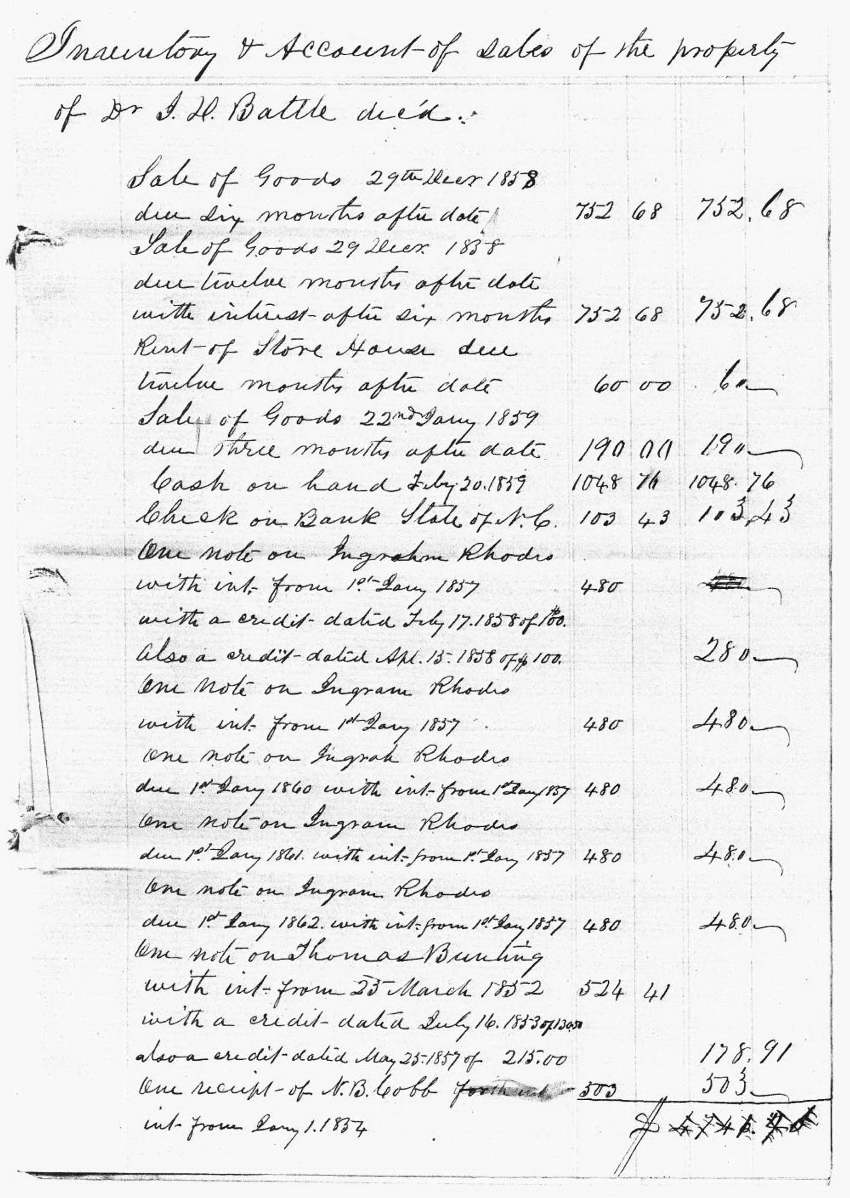 Inventory & Account of Sales of the property
of Dr I. H. Battle dec'd.
Sale of Goods 29th Decr 1858
due six months after date 752 68 752.68
Sale of Goods 29 Decr. 1858
due twelve months after date
with interest after six months 752 68 752.68
Rent of Store House due
twelve months after date 60 00 60
Sale of Goods 22nd Jany 1859
due three months after date 190 00 190
Cash on hand Feby 20. 1859 1048 76 1048.76
Check on Bank State of N. C. 103 43 103.43
One note on Ingrahm Rhodes
with int. from 1st Jany 1857 480
with a credit dated Feby 17. 1858 of $100.
Also a credit dated Apl. 15. 1858 of $100. 280
One note on Ingram Rhodes
with int. from 1st Jany 1857 480 480
One note on Ingrah Rhodes
due 1st Jany 1860 with int. from 1st Jany 1857 480 480
One note on Ingram Rhodes
due 1st Jany 1861. with int. from 1st Jany 1857 480 480
One note on Ingram Rhodes
due 1st Jany 1862. with int. from 1st Jany 1857 480 480
One note on Thomas Bunting
with int. from 25 March 1852 524 41
with a credit dated July 16. 1853 of 130.50
also a credit dated May 25 1857 of 215.00 178.91
One receipt of N. B. Cobb 503 503
int. from Jany 1. 1854 $